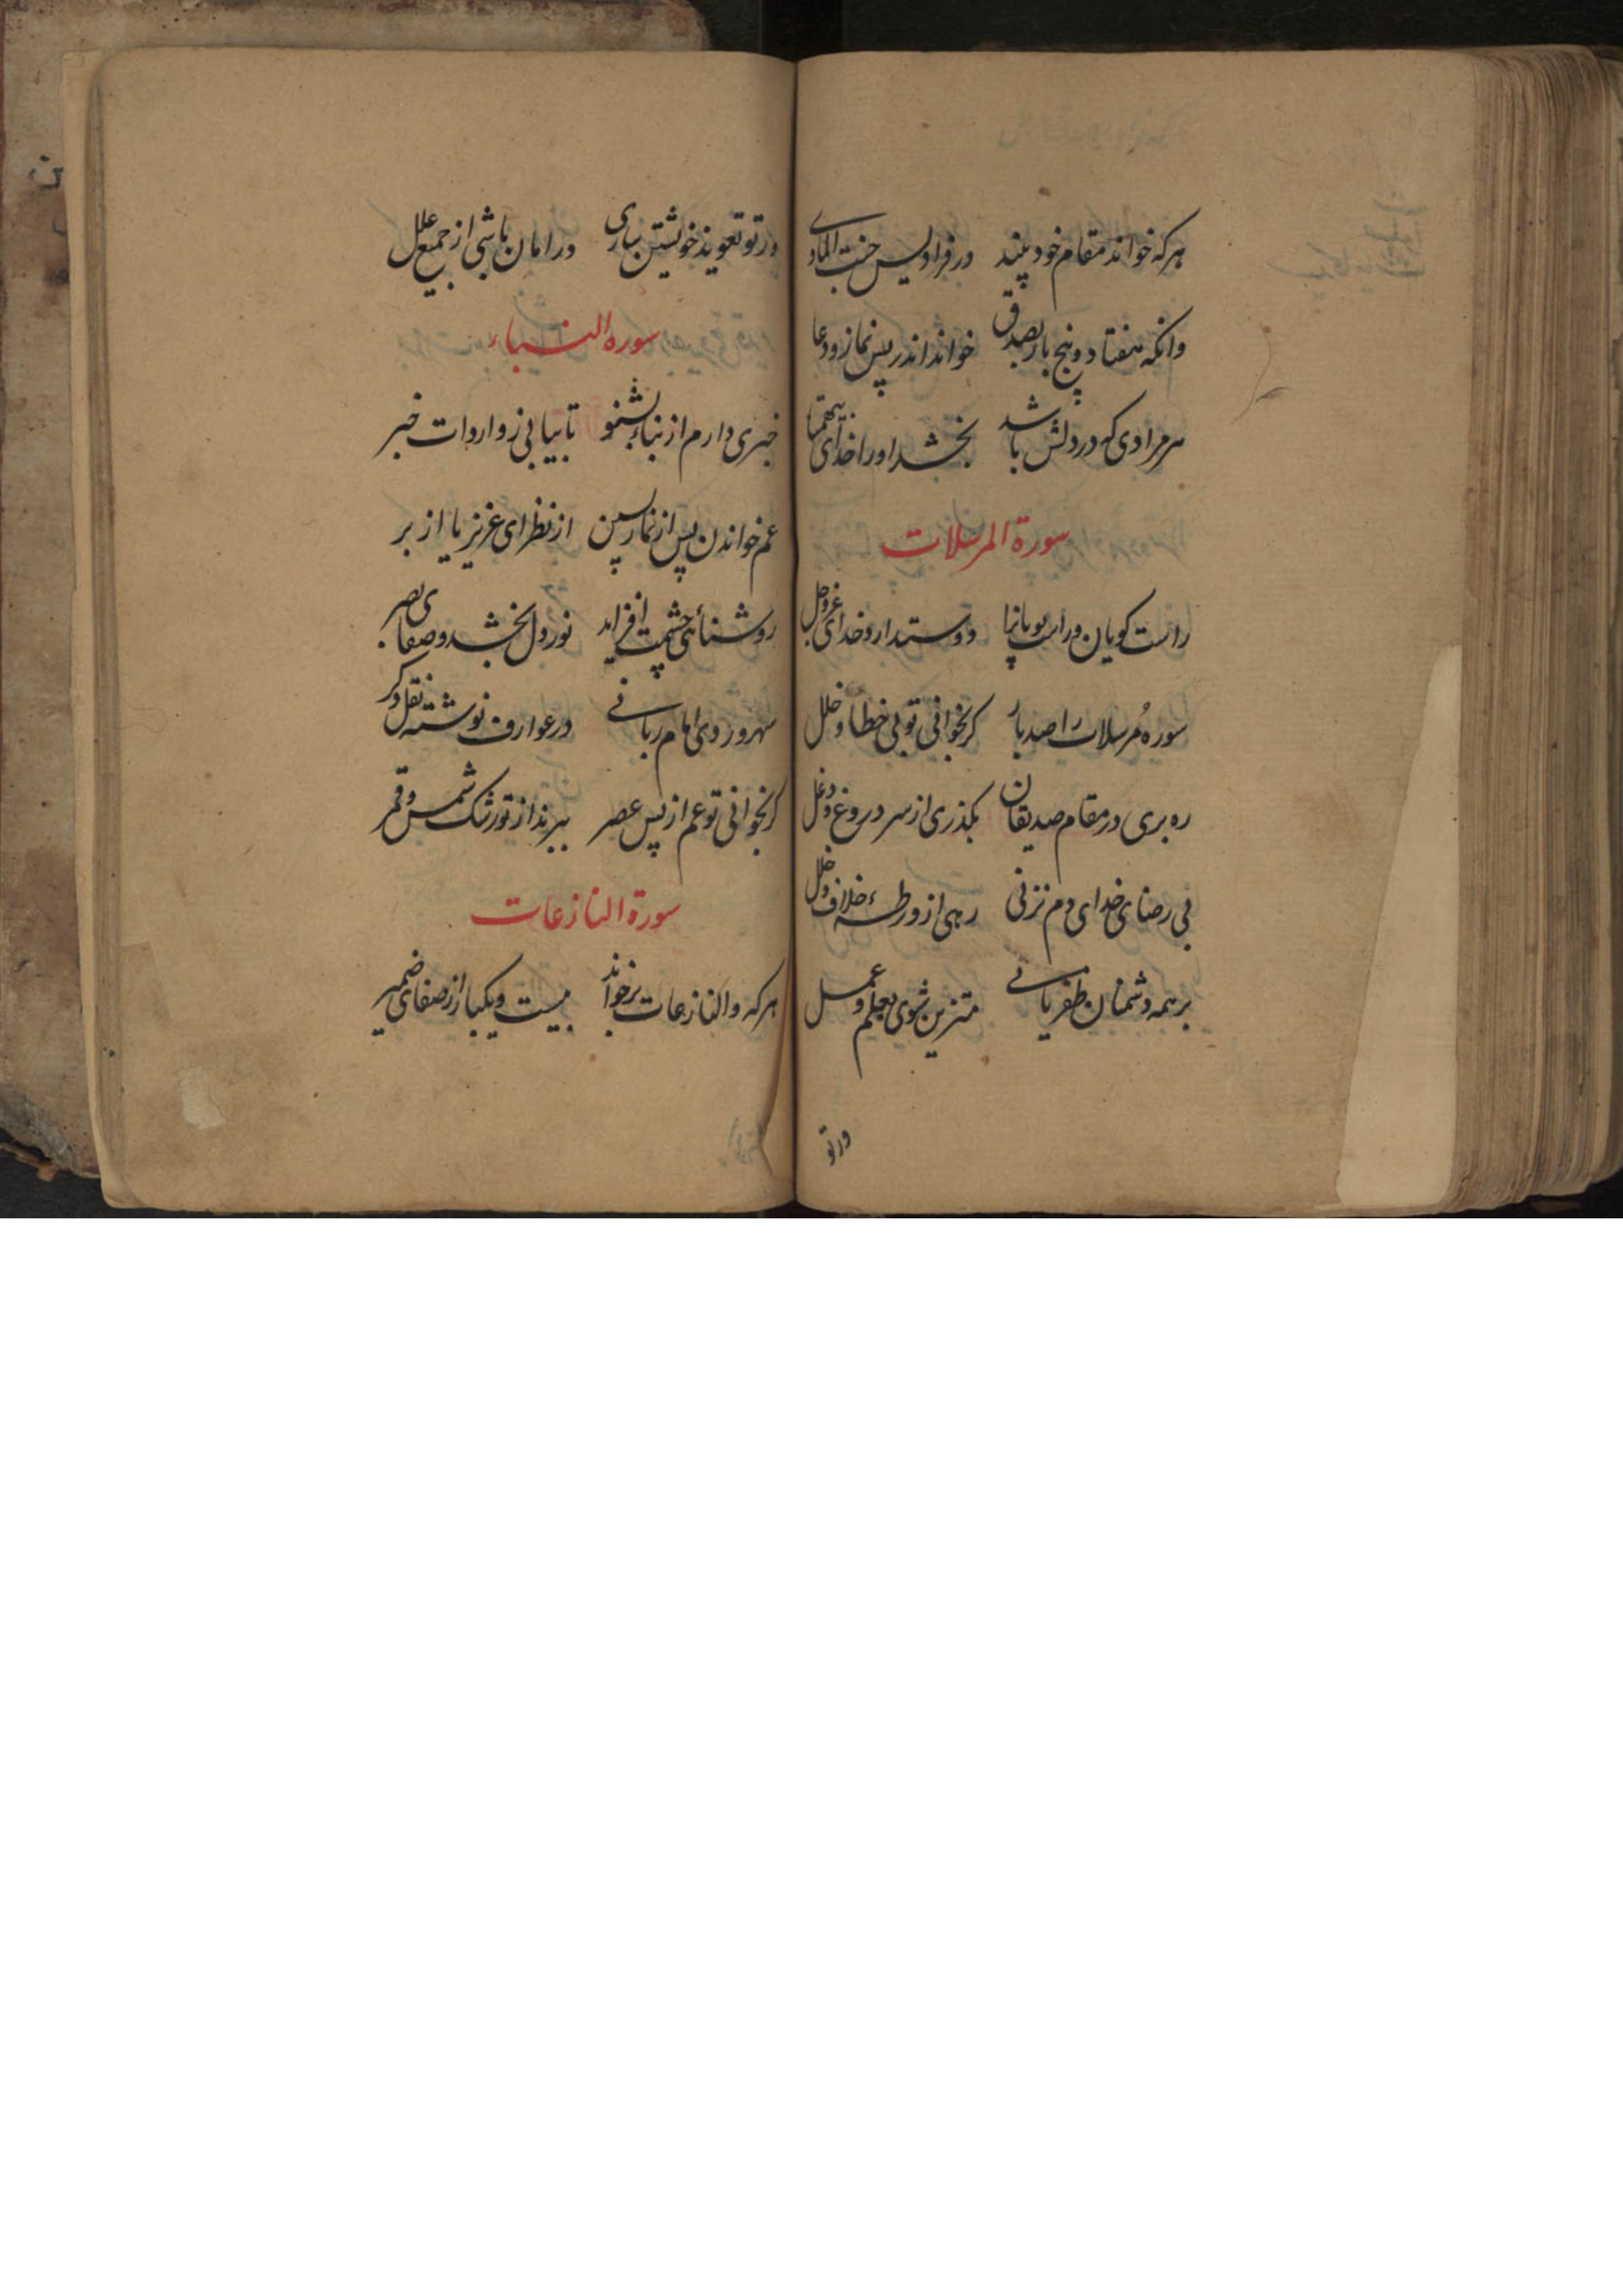 هرکه خواند مقام خود بیند در فرادیس جنت الماوی
وانکه هفتاد و پنج بار بصدق خواند اندر پس نماز و دعا
هر مرادی که در دلش باشد بخشد او را خدای بیهمتا
سورة المرسلات
راست کویان و راست پویانرا دوستدارد خدای عز و جل
سوره مرسلات را صد بار کر بخوانی تو بی خطا و خلل
ره بری در مقام صدیقان بکذری از سر دروغ و دغل
بی رضای خدای دم نزنی رهی از ورطهء خلاف و خلل
بر همه دشمنان ظفر یابی متزین شوی بعلم و عمل
ور تو
ور تو تعویذ خویشتن سازی در امان باشی از جمیع علل
سوره النباء
خبری دارم از نباء بشنو تا بیابی ز واردات خبر
عم خواندن پس از نماز پسین از نظر ای عزیز یا از بر
روشنائی چشمت افزاید نور دل بخشد و صفای بصر
سهروردی امام ربانی در عوارف نوشته نقل دکر
کر بخوانی تو عم از پس عصر ببرند از تو رشک شمس و قمر
سورة النازعات
هرکه والنازعات برخواند بیست و یکبار از صفای ضمیر